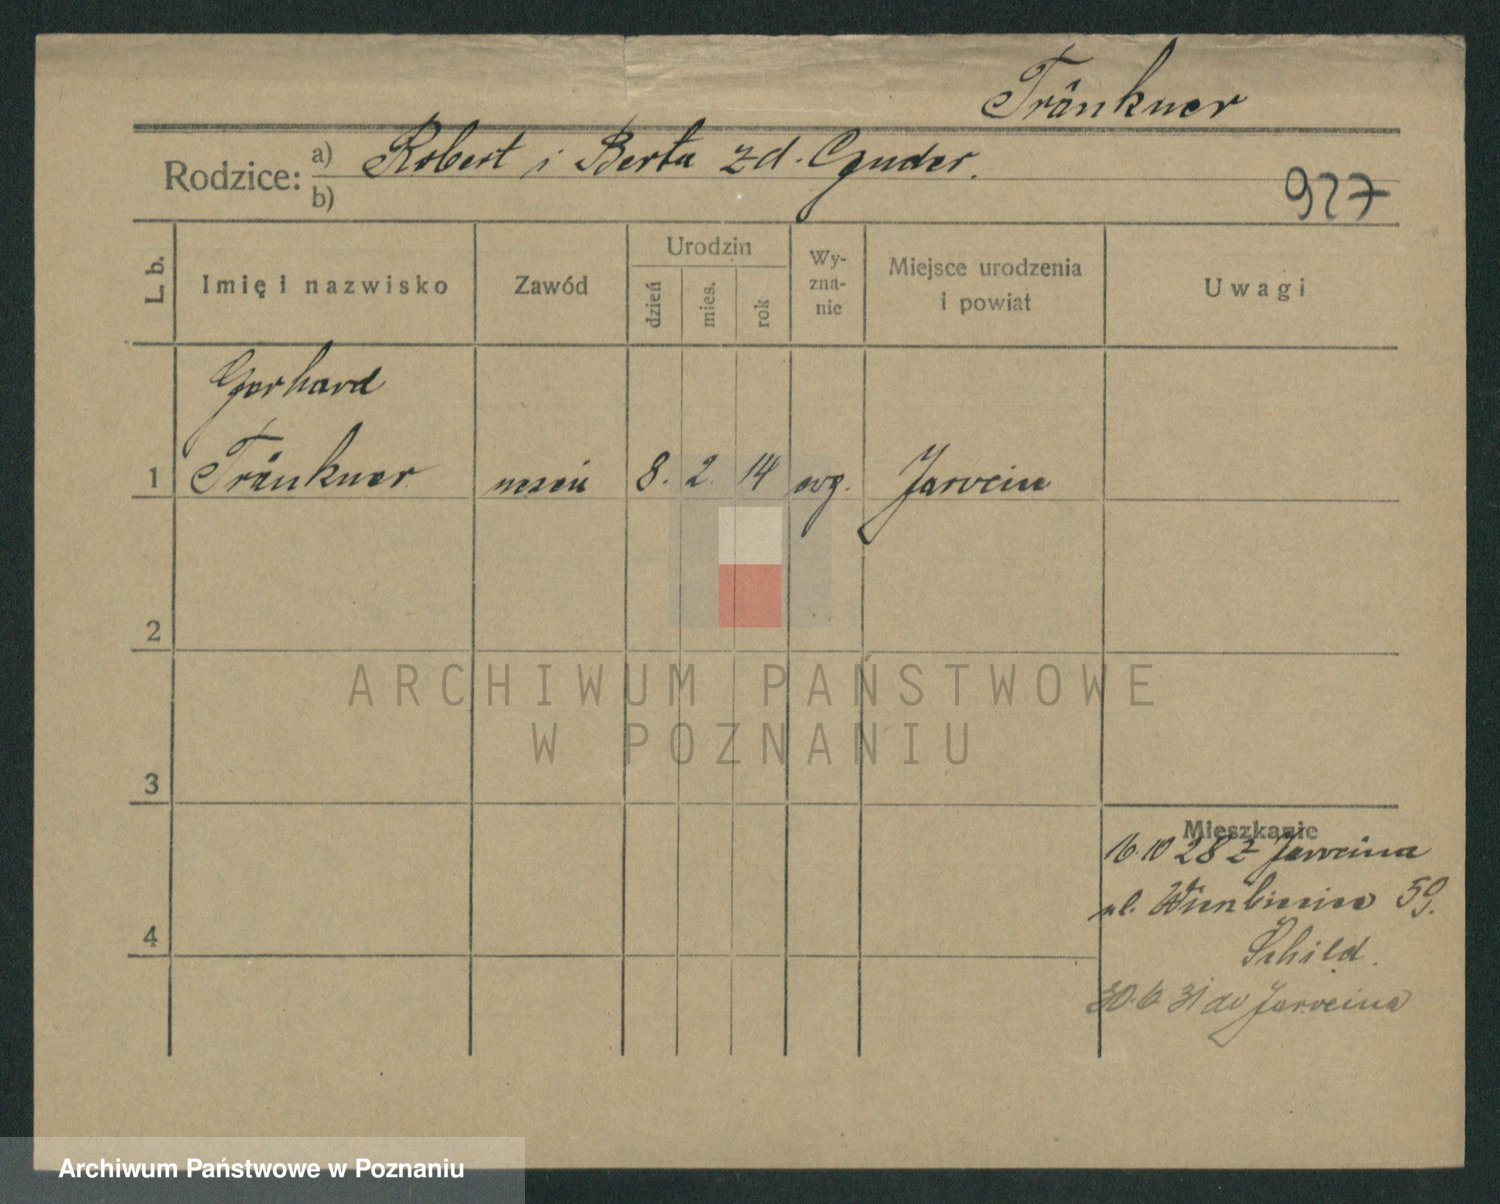 Tränkner
Rodzice: a) Robert i Berta zd. Gnuder.
b)
927
L. b.
Imię i nazwisko
Zawód
Urodzin
dzień
mies.
rok
Wy-
zna-
nie
Miejsce urodzenia
i powiat
Uwagi
Gerhard
1 Tränkner uczeń 8. 2. 14 ewg. Jarocin
2
3
4
Mieszkanie
16.10 28 z Jarocina
ul. 59.
Schild.
30.6 31 do Jarocina
ARCHIWUM PAŃSTWOWE
W POZNANIU
Archiwum Państwowe w Poznaniu